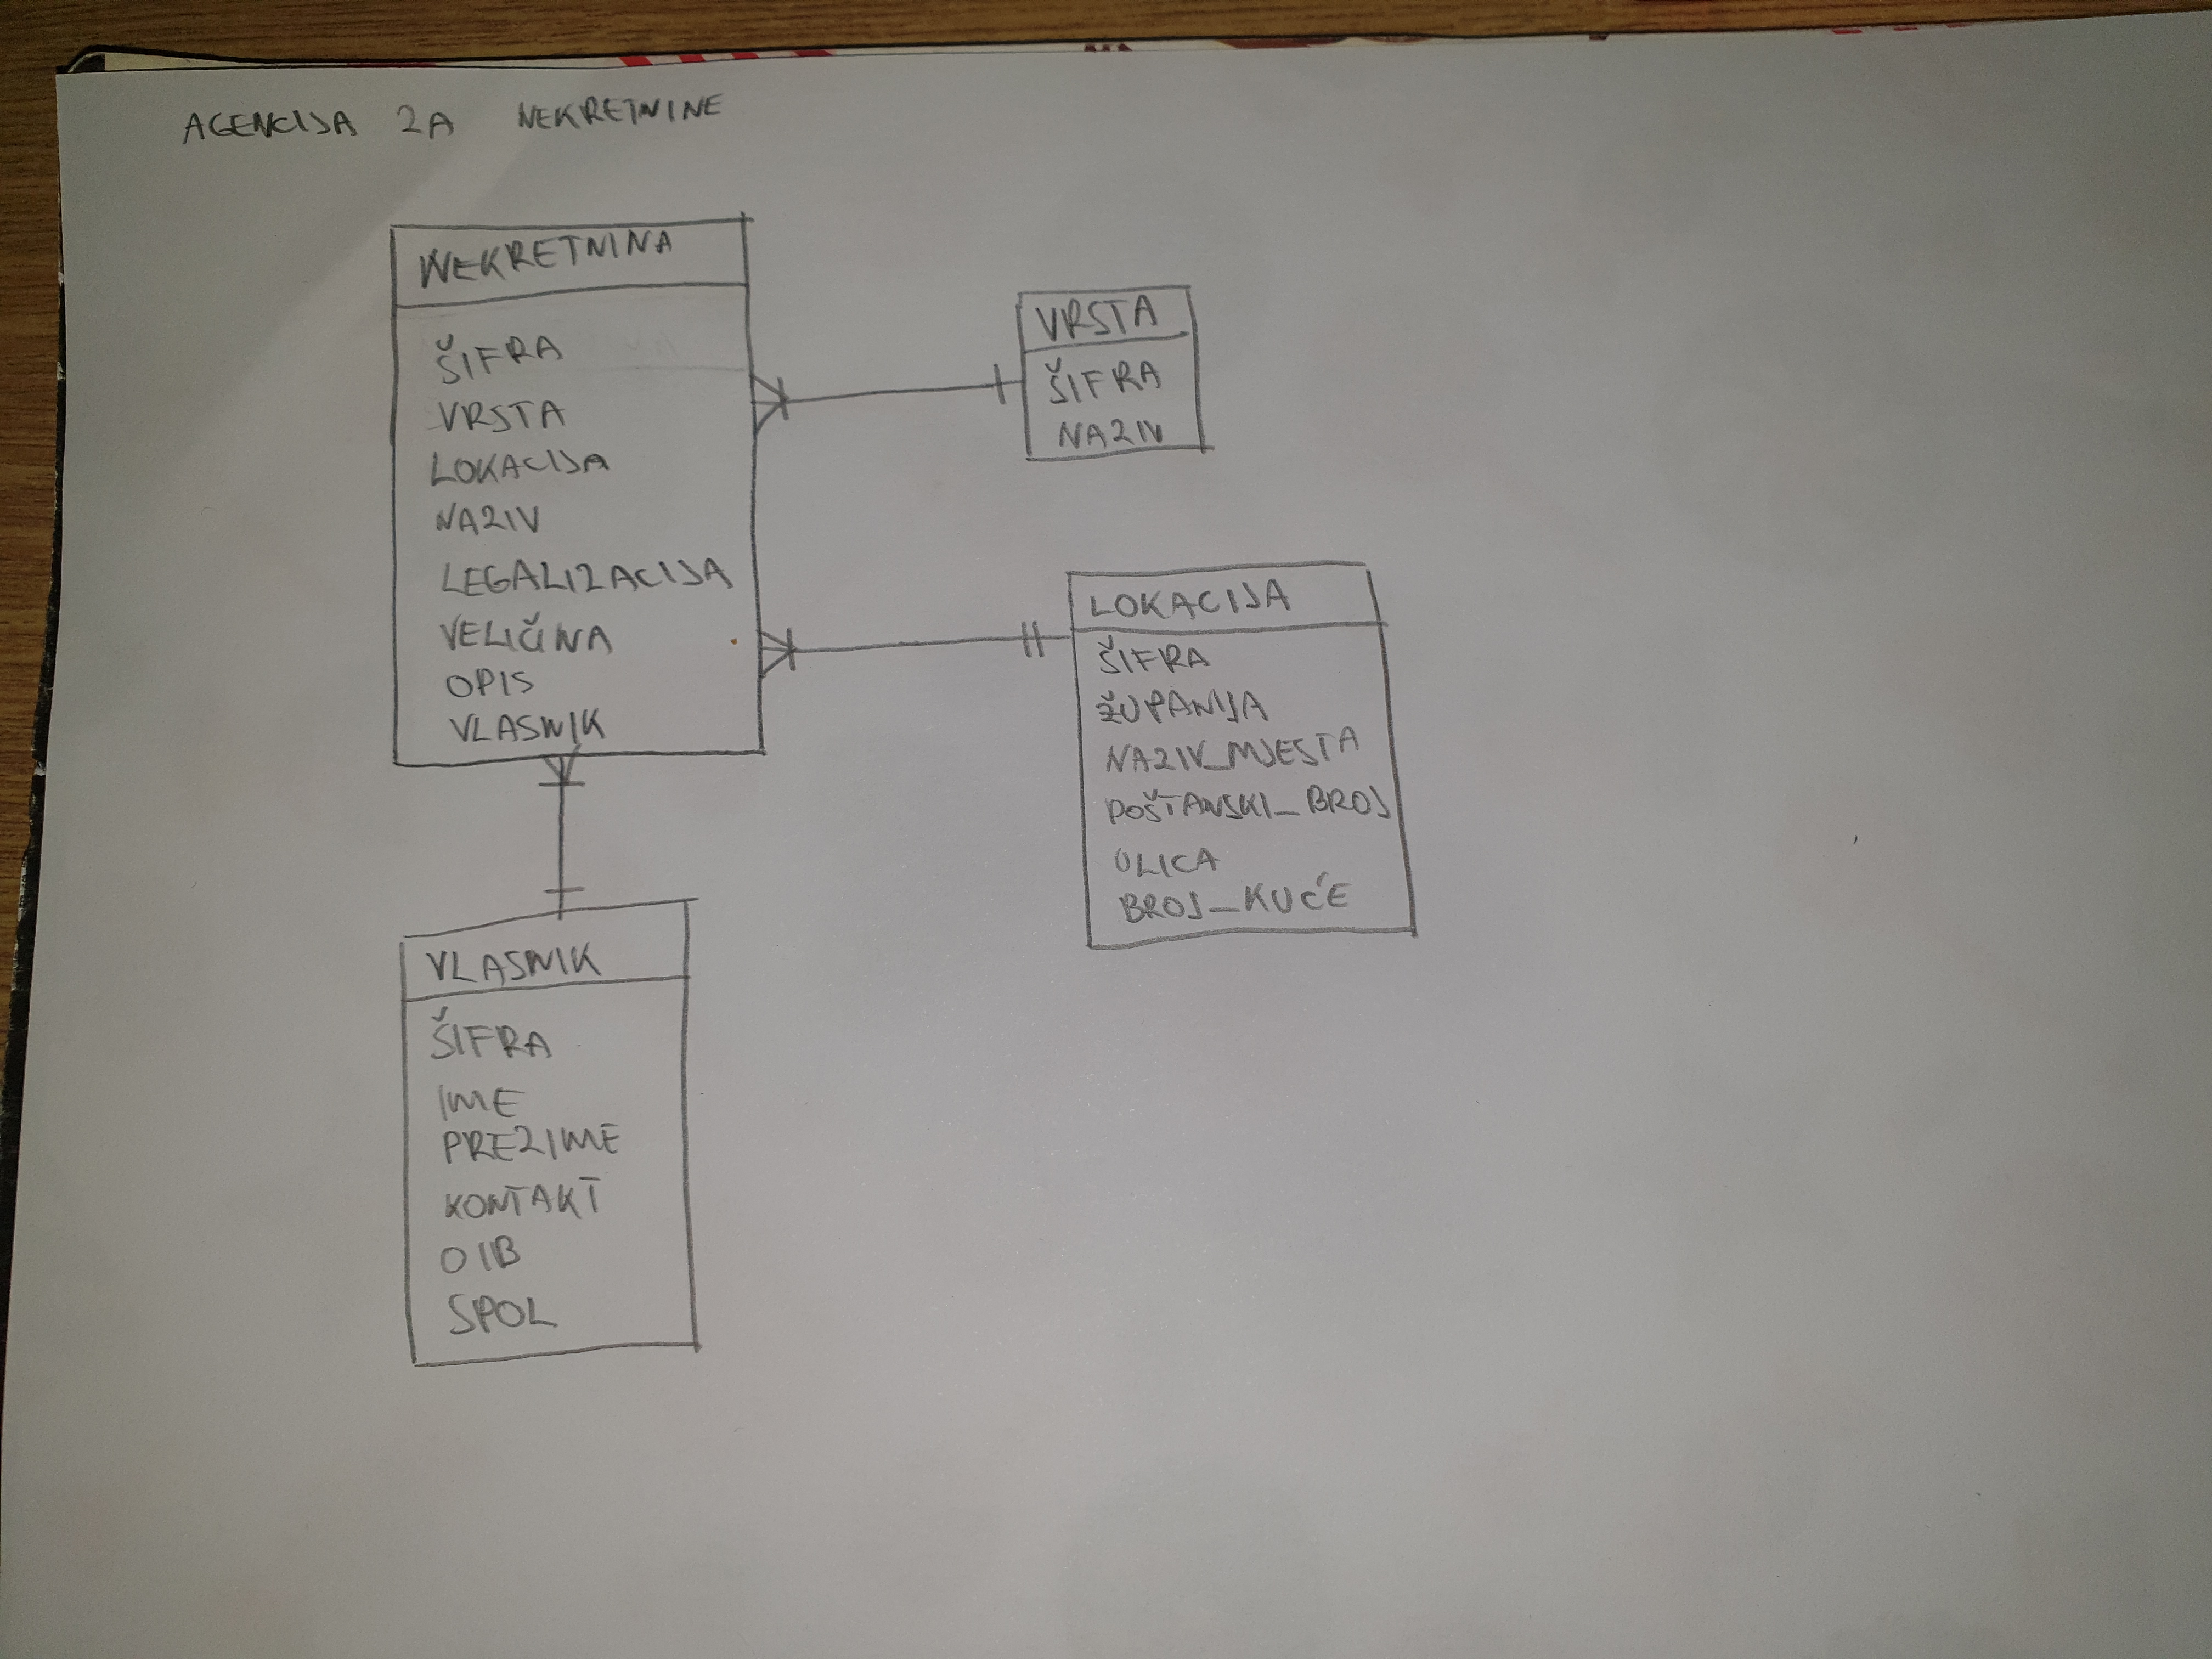 AGENCIJA ZA NEKRETNINE
NEKRETNINA
ŠIFRA
VRSTA
LOKACIJA
NAZIV
LEGALIZACIJA
VELIČINA
OPIS
VLASNIK
VRSTA
ŠIFRA
NAZIV
LOKACIJA
ŠIFRA
ŽUPANIJA
NAZIV_MJESTA
POŠTANSKI_BROJ
ULICA
BROJ_KUĆE
VLASNIK
ŠIFRA
IME
PREZIME
KONTAKT
OIB
SPOL